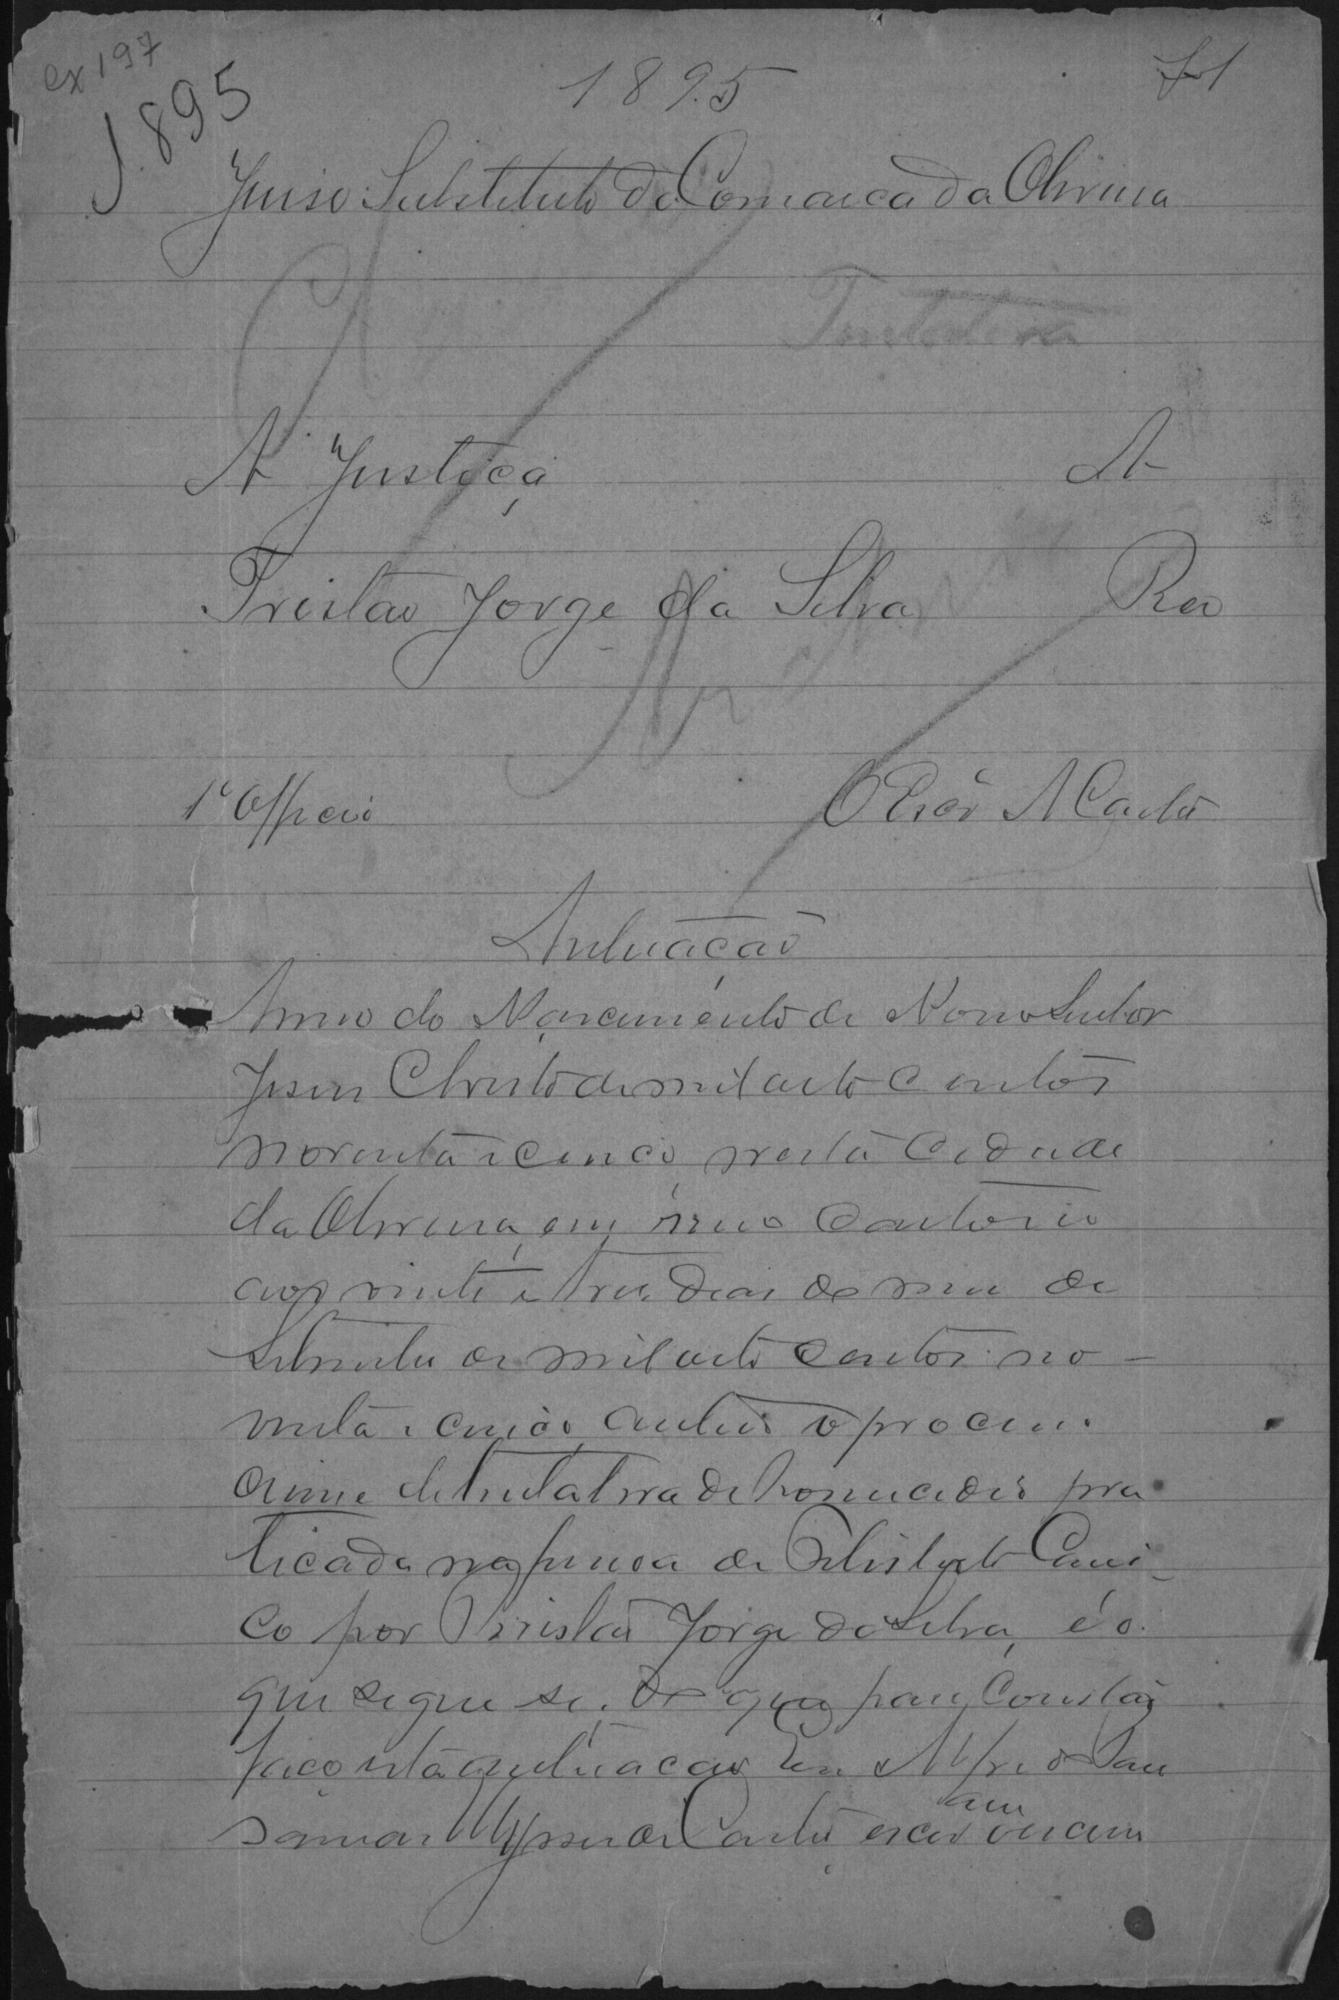 cx 197
1895
1895
Juiso Substituto da Comarca da Oliveira
A Justiça A
Tristão Jorge da Silva Reo
1º Officio O Escr.ão A Costa
Autuação
Anno do Nascimento de Nosso Senhor
Jesus Christo de mil oito centos
noventa e cinco, nesta cidade
da Oliveira, em meu cartorio
aos vinte e tres dias do mes de
Setembro de mil oito centos no-
venta e cinco autuo o processo
crime de tentativa de homicidio pra
ticada na pessoa de Felisberto
co por Tristão Jorge da Silva, é o
que segue se. Do que para constar
faço esta autuação Eu
Ulysses da Costa escrivão